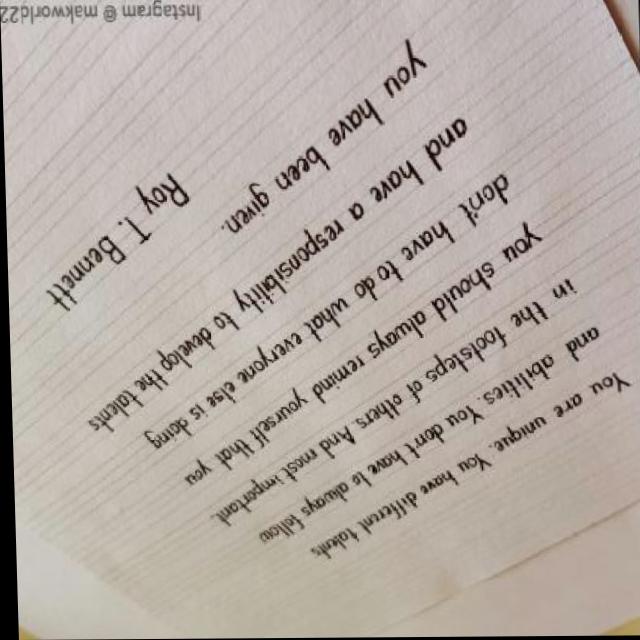 You are unique. You have different talents
and abilities. You don't have to always follow
in the footsteps of others. And most important
you should always remind yourself that you
don't have to do what everyone else is doing
and have a responsibility to develop the talents
you have been given.
Roy T. Bennett
Instagram @ makworld22